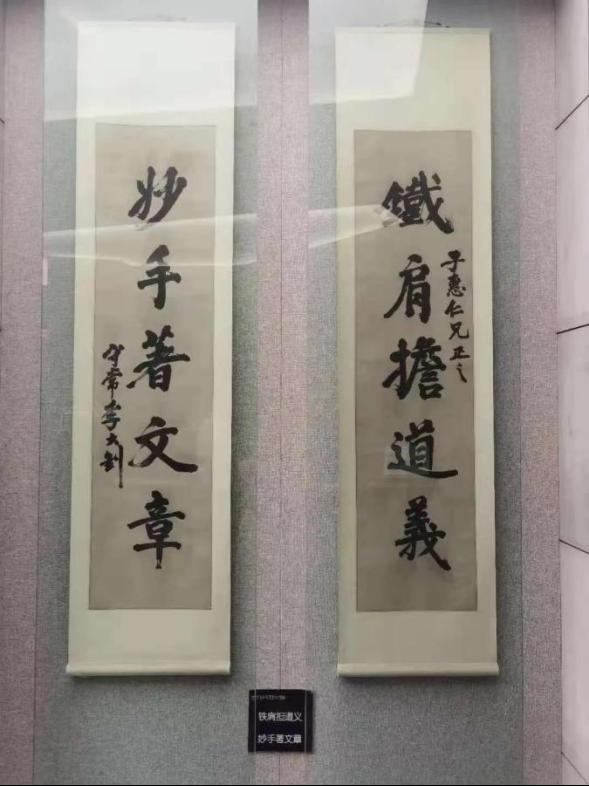 鐵肩擔道義
子惠仁兄正之
妙手著文章
守常李大釗
铁肩担道义
妙手著文章